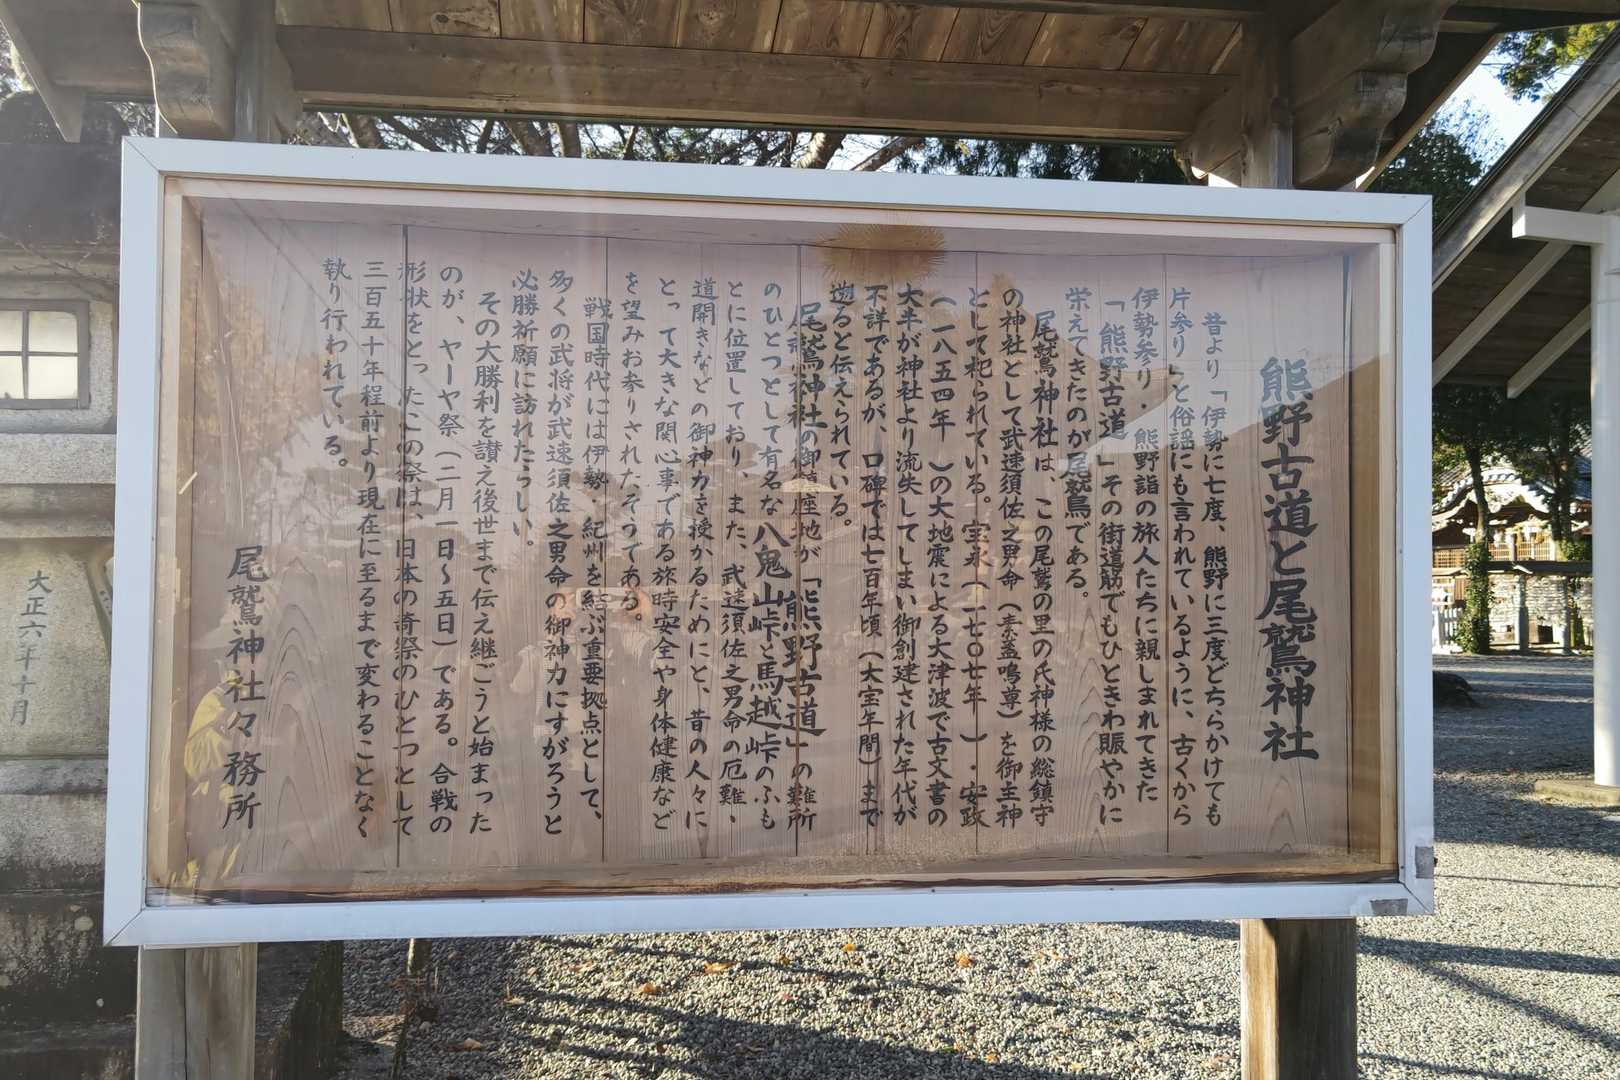 熊野古道と尾鷲神社
昔より「伊勢に七度、熊野に三度どちらかけても
片参り」と俗謡にも言われているように、古くから
伊勢参り・熊野詣の旅人たちに親しまれてきた
「熊野古道」その街道筋でもひときわ賑やかに
栄えてきたのが尾鷲である。
尾鷲神社は、この尾鷲の里の氏神様の総鎮守
の神社として武速須佐之男命（素盞嗚尊）を御主神
として祀られている。宝永（一七〇七年）・安政
（一八五四年）の大地震による大津波で古文書の
大半が神社より流失してしまい御創建された年代が
不詳であるが、口碑では七百年頃（大宝年間）まで
遡ると伝えられている。
尾鷲神社の御鎮座地が「熊野古道」の難所
のひとつとして有名な八鬼山峠と馬越峠のふも
とに位置しており、また、武速須佐之男命の厄難、
道開きなどの御神力を授かるためにと、昔の人々に
とって大きな関心事である旅時安全や身体健康など
を望みお参りされたそうである。
戦国時代には伊勢 紀州を結ぶ重要拠点として、
多くの武将が武速須佐之男命の御神力にすがろうと
必勝祈願に訪れたらしい。
その大勝利を讃え後世まで伝え継ごうと始まった
のが、ヤーヤ祭（二月一日〜五日）である。合戦の
形状をとったこの祭は、日本の奇祭のひとつとして
三百五十年程前より現在に至るまで変わることなく
執り行われている。
尾鷲神社々務所
大正六年十月